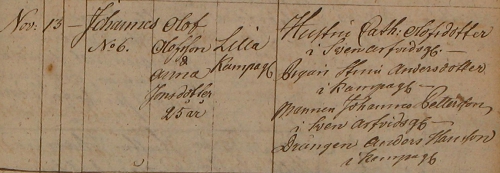 Nov: 13 – Johannes Olof Hustru Cath: Olofsdotter
No 6. Olofsson Lilla i Sven Arfvidsg –
& Kampag Pigan Stina Andersdotter
Anna i Kampag –
Jonsdotter Mannen Johannes
25 år i Sven Arfvidsg –
Drängen Anders Hansson
i Kampag